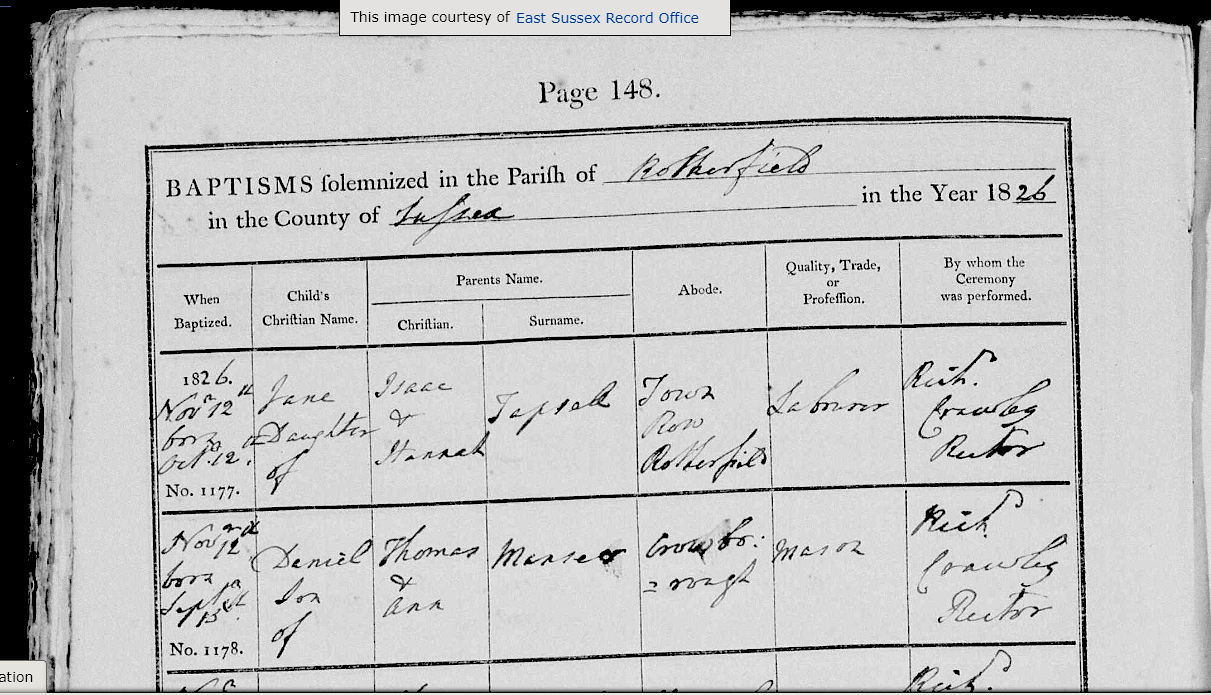 This image courtesy of East Sussex Record Office
Page 148.
BAPTISMS solemnized in the Parish of Rotherfield
in the County of Sussex in the Year 1826
When Baptized.
Child's Christian Name.
Parents Name.
Christian.
Surname.
Abode.
Quality, Trade, or Profession.
By whom the Ceremony was performed.
1826.
Novr 12th
born
Octr 12.
No. 1177.
Jane
Daughter
of
Isaac
&
Hannah
Tapsell
Town
Row
Rotherfield
Labourer
Richd.
Crawley
Rector
Novr 12th
born
Septr
No. 1178.
Daniel
Son
of
Thomas
&
Ann
Manser
Crowbo:
=rough
Mason
Richd
Crawley
Rector
ation
Richd.